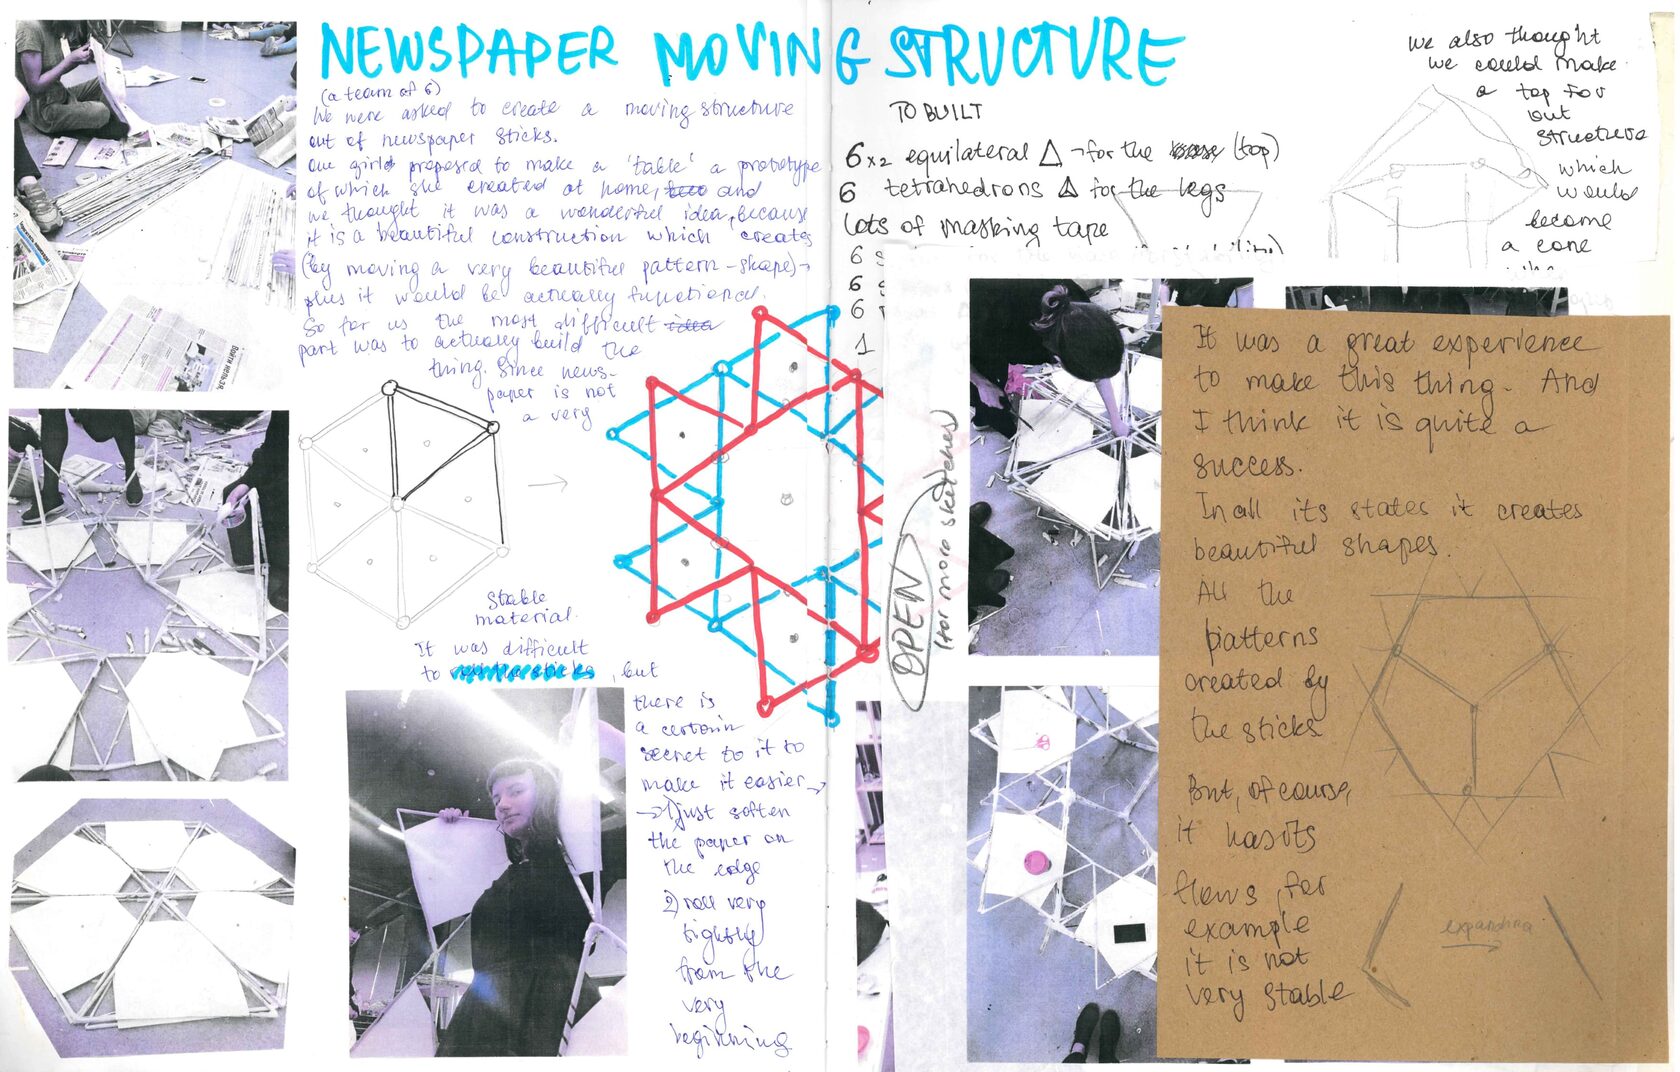 NEWSPAPER MOVING STRUCTURE
(a team of 6)
We were asked to create a moving structure
out of newspaper sticks.
One girl proposed to make a 'table' a prototype
of which she created at home, and
we thought it was a wonderful idea, because
it is a beautiful construction which creates
(by moving a very beautiful pattern - shape) -
plus it would be actually functional.
So for us the most difficult idea
part was to actually build the
thing. Since news-
paper is not
a very
stable
material.
It was difficult
to roll the sticks, but
there is
a certain
secret to it to
make it easier →
→ 1) just soften
the paper on
the edge
2) roll very
tightly
from the
very
beginning
TO BUILT
6x2 equilateral △ - for the base (top)
6 tetrahedrons △ for the legs
lots of masking tape
6 s
6
6
1
OPEN
(for more sketches)
We also thought
we could make
a top for
out
structure
which
would
become
a cone
It was a great experience
to make this thing. And
I think it is quite a
success.
In all its states it creates
beautiful shapes.
All the
patterns
created by
the sticks
But, of course,
it has its
flows, for
example
it is not
very stable
expanding